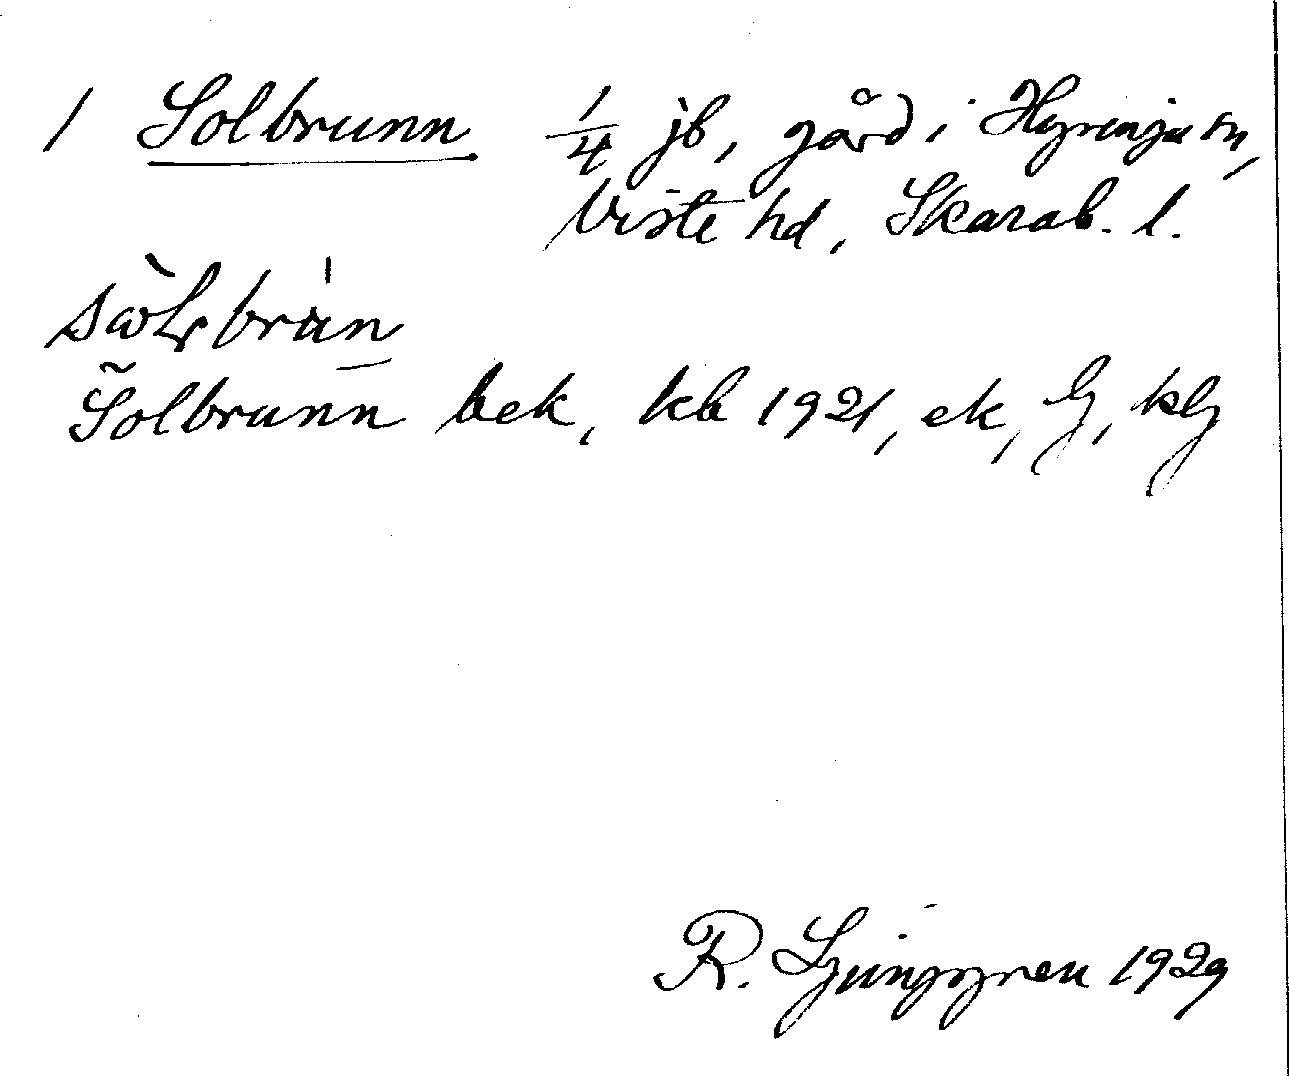 1 Solbrunn 1/4 jb, gård i Hyringa sn,
Viste hd, Skarab. l.
Solbrunn bek, kb 1921, ek, G, kG
R. Ljunggren 1929